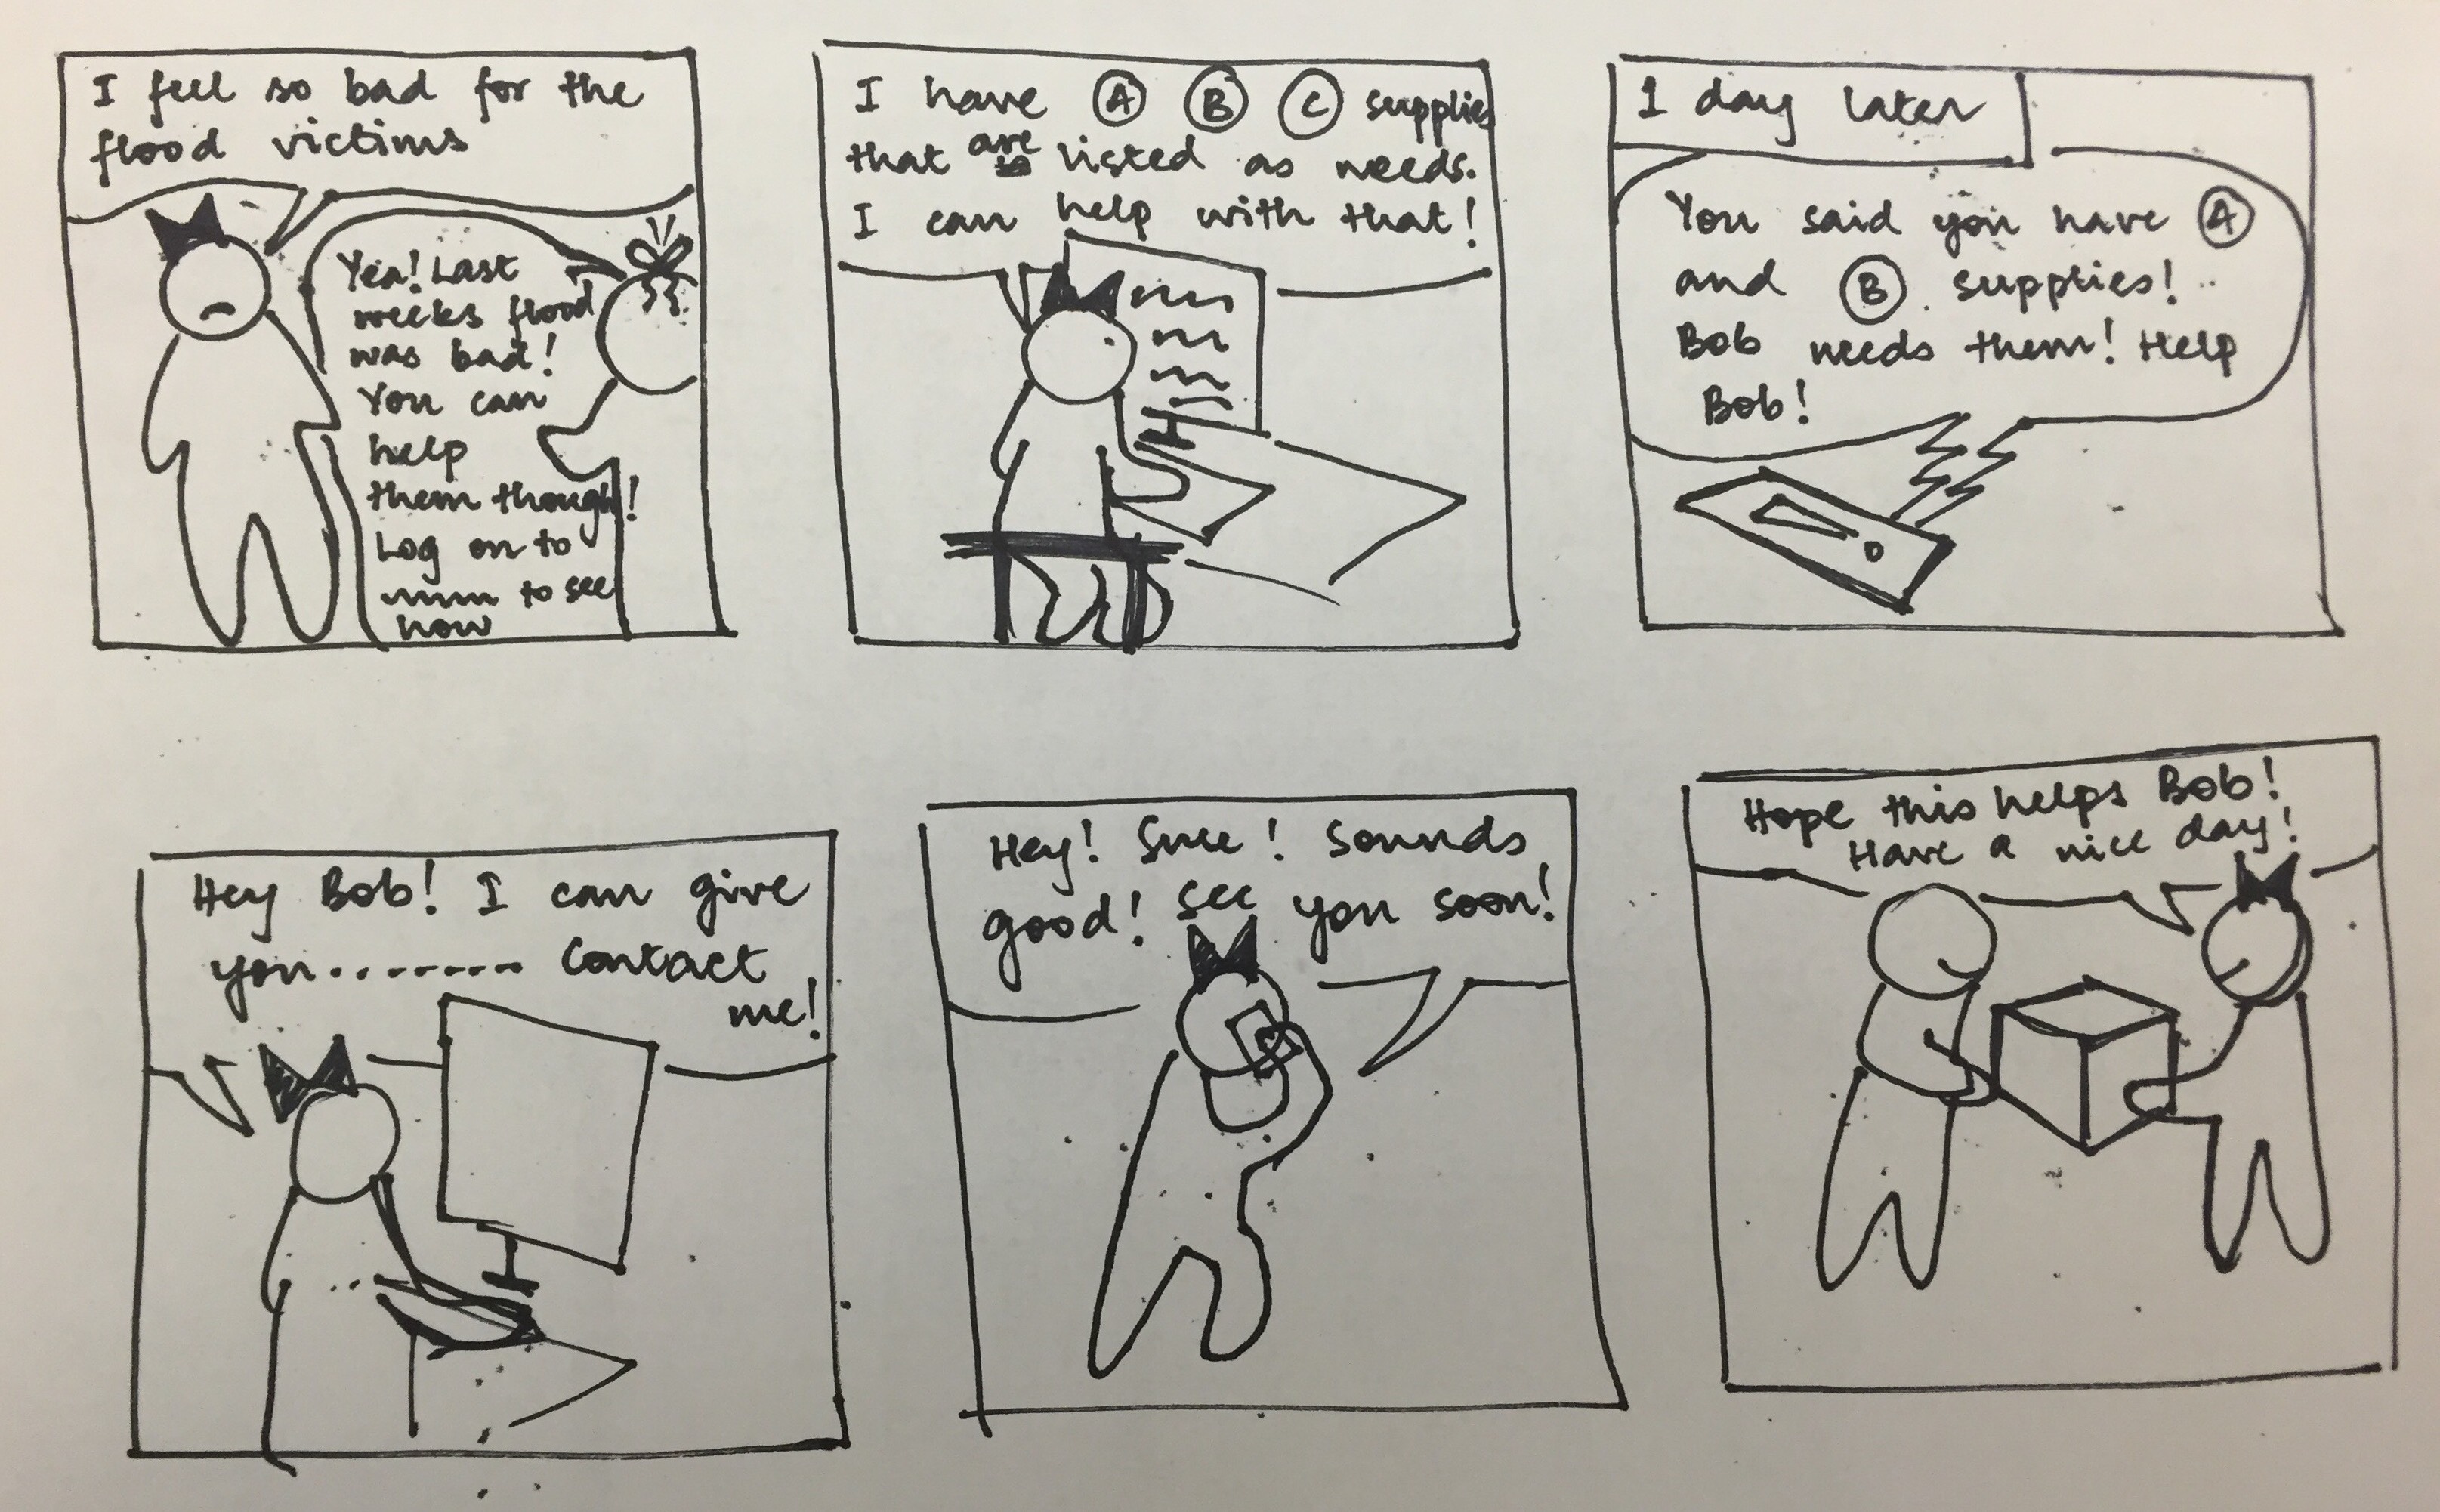 I feel so bad for the
flood victims
Yea! Last
weeks flood
was bad!
You can
help
them though!
Log on to
to see
how
I have A B C supplies
that are listed as needs.
I can help with that!
1 day later
You said you have A
and B supplies!
Bob needs them! Help
Bob!
Hey Bob! I can give
you........ Contact
me!
Hey! Sure! Sounds
good! See you soon!
Hope this helps Bob!
Have a nice day!